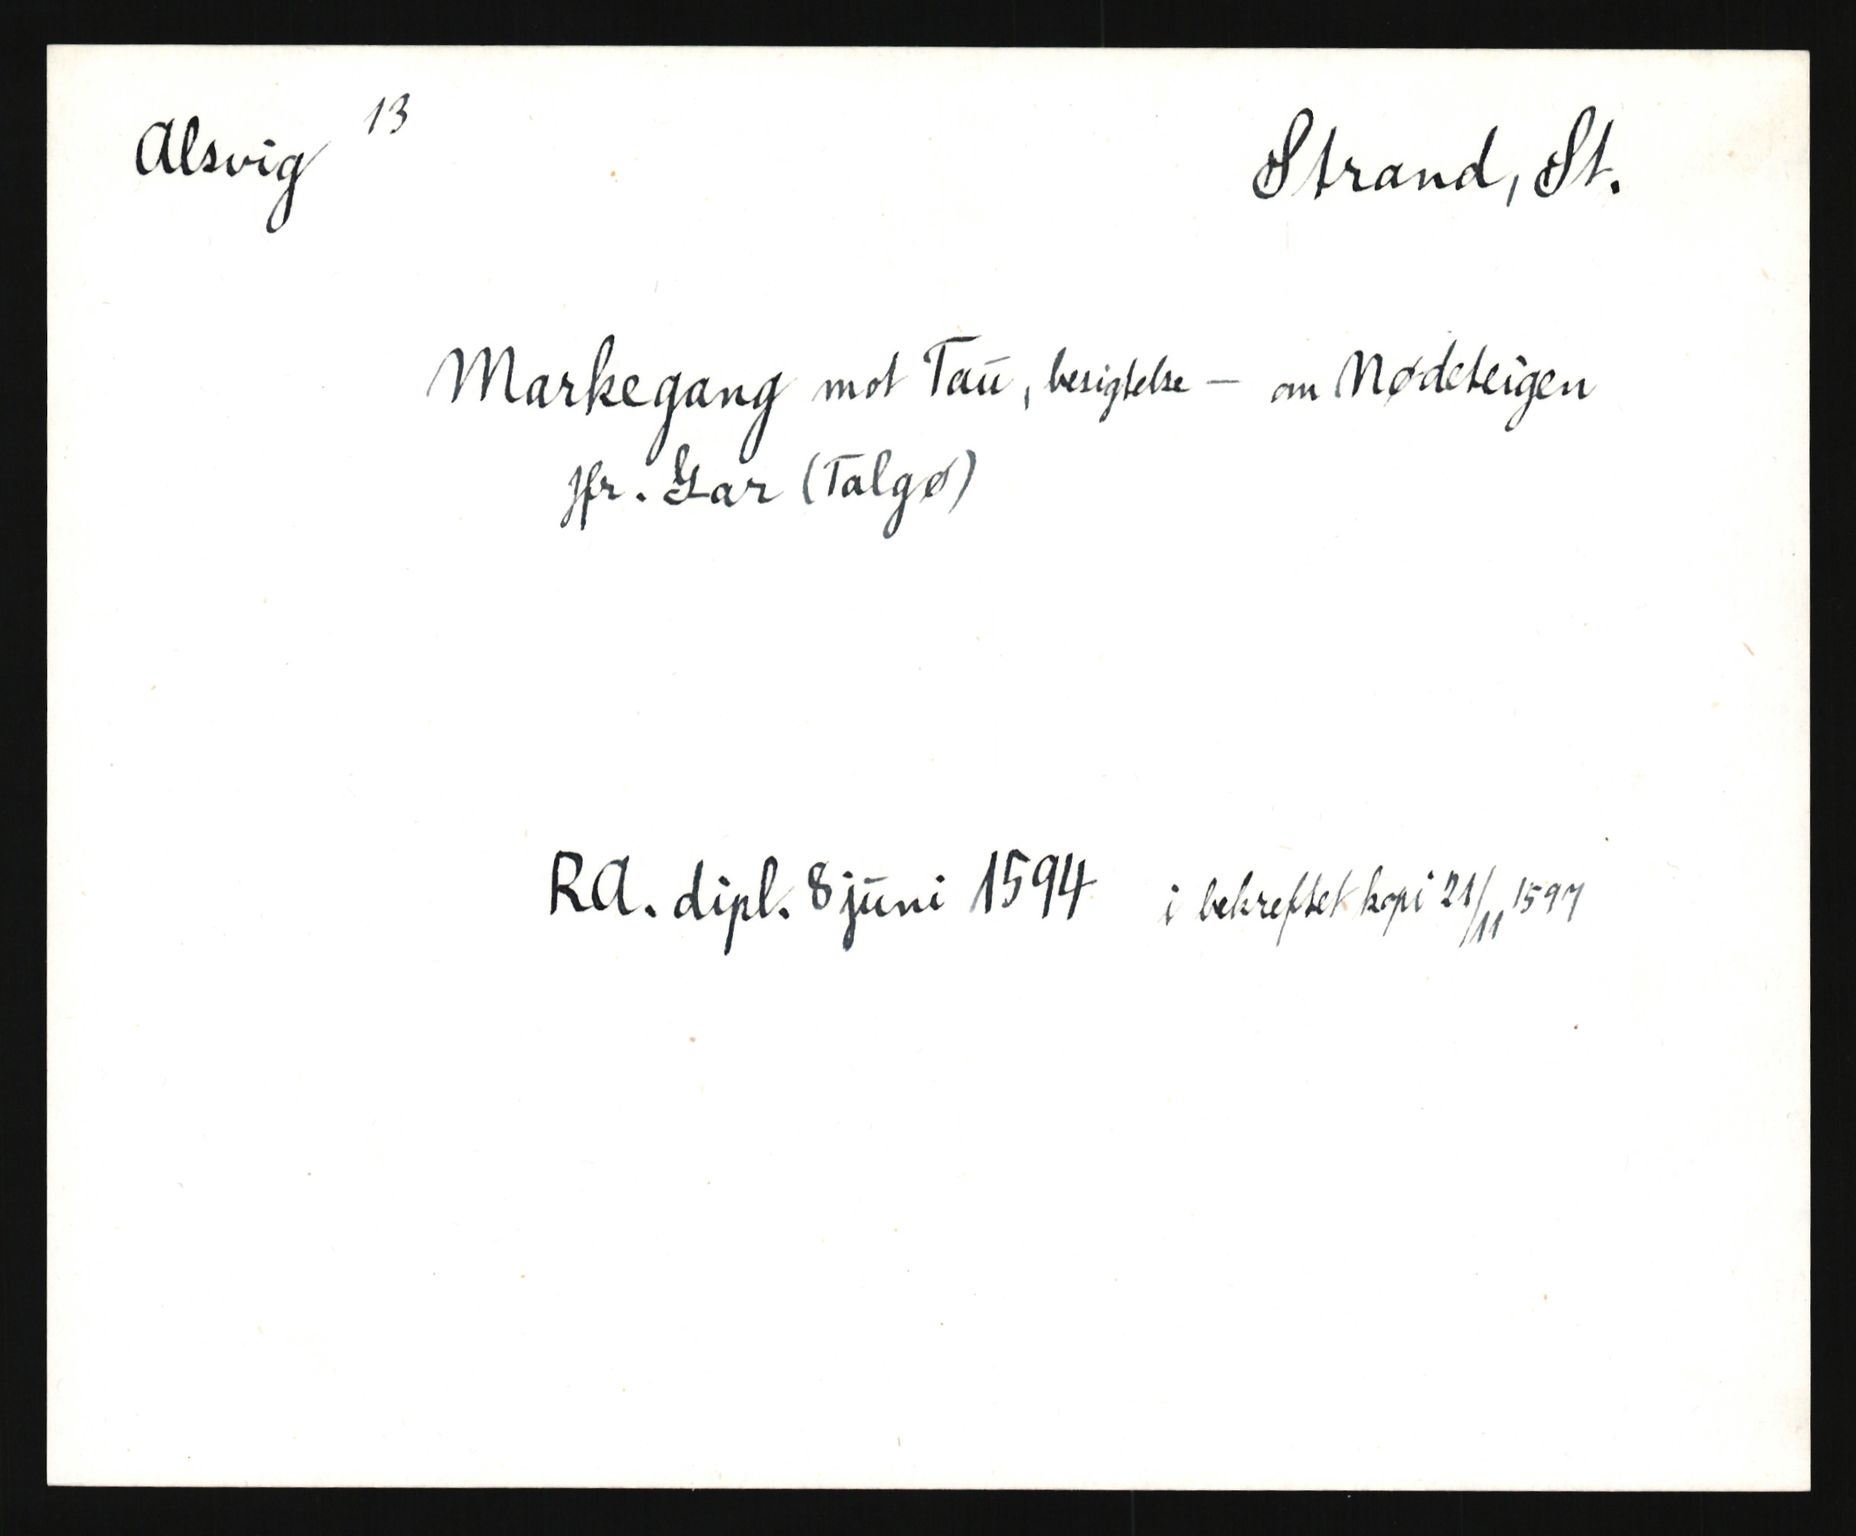 Alsvig 13 Strand, St.
Markegang mot Tau, besigtelse — om Nødeteigen
jfr. Gar (Talgø)
RA. dipl. 8 juni 1594 i bekreftet kopi 21/11 1597